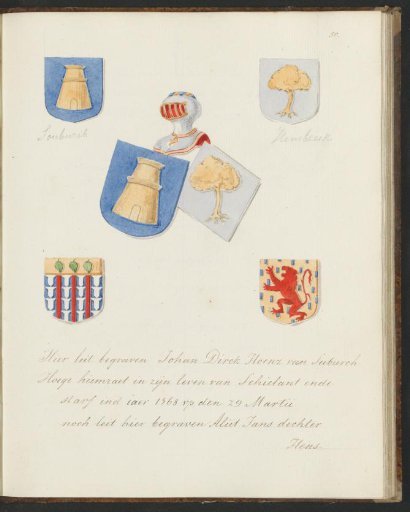 50.
Hier leit begraven Johan Dirck Hoenz van
Hooge heimraet in zijn leven van Schielant ende
starf int iaer 1568 op den 29 Martii
noch leit hier begraven Aliet Jans dochter
Hoens